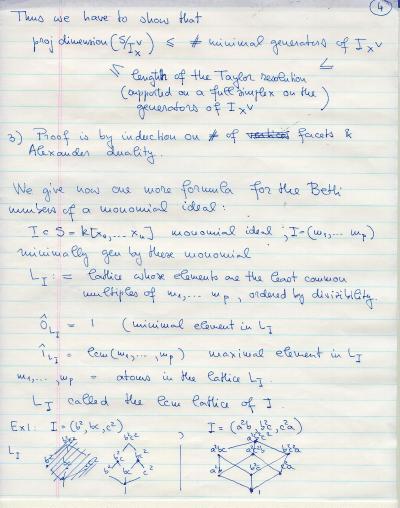 4
Thus we have to show that
proj dimension (S/I_X^∨) ≤ # minimal generators of I_X^∨
length of the Taylor resolution
(supported on a full simplex on the
generators of I_X^∨)
3) Proof is by induction on # of facets &
Alexander duality.
We give now one more formula for the Betti
numbers of a monomial ideal:
I ⊂ S = k[x_1,... x_n] monomial ideal; I=(m_1,... m_p)
minimally gen by these monomial
L_I := lattice whose elements are the least common
multiples of m_1,... m_p, ordered by divizibility.
0̂_{L_I} = 1 (minimal element in L_I
1̂_{L_I} = lcm(m_1,...,m_p) maximal element in L_I
m_1,...,m_p = atoms in the lattice L_I.
L_I called the lcm lattice of I.
Ex1: I=(b²,bc,c²) , I=(a²b, b²c, c²a)
L_I b²c² a²b²c²
b²c bc²
b² bc c²
1 1